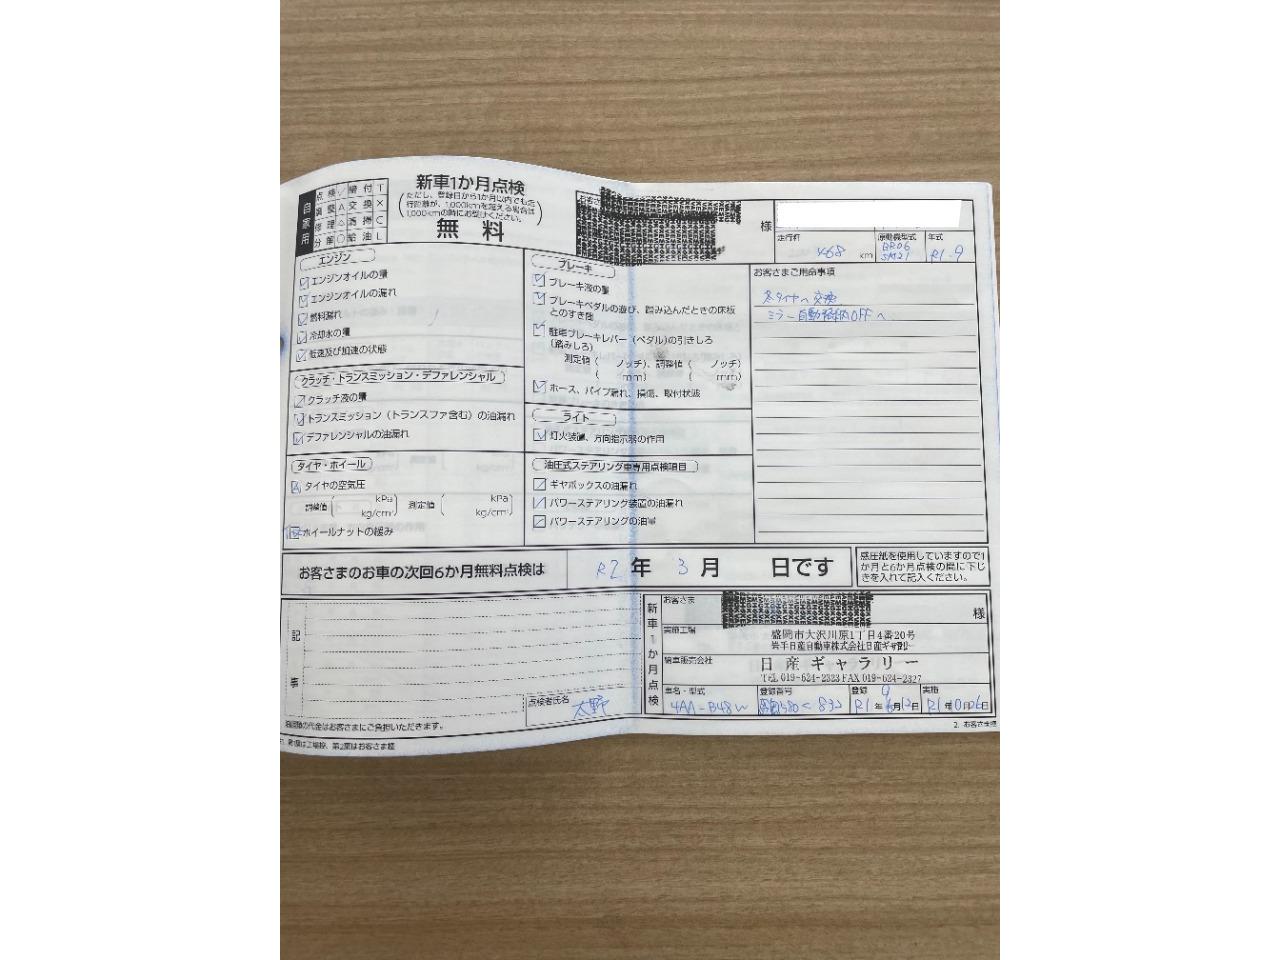 自家用
点検 ✓ 締付 T
調整 A 交換 ×
修理 △ 清掃 C
分解 ○ 給油 L
新車1か月点検
(ただし、登録日から1か月以内でも走
行距離が、1,000kmを超える場合は
1,000kmの時にお受けください。)
無 料
お客さま
様
走行杆
468 km
原動機型式
BR06
SM21
年式
R1.9
エンジン
エンジンオイルの量
エンジンオイルの漏れ
燃料漏れ
冷却水の量
低速及び加速の状態
クラッチ・トランスミッション・デファレンシャル
クラッチ液の量
トランスミッション(トランスファ含む)の油漏れ
デファレンシャルの油漏れ
タイヤ・ホイール
タイヤの空気圧
調整値 ( kPa kg/cm² ) 測定値 ( kPa kg/cm² )
ホイールナットの緩み
ブレーキ
ブレーキ液の量
ブレーキペダルの遊び、踏み込んだときの床板
とのすき間
駐車ブレーキレバー(ペダル)の引きしろ
(踏みしろ)
測定値( ノッチ)、調整値( ノッチ)
( mm) ( mm)
ホース、パイプ漏れ、損傷、取付状態
ライト
灯火装置、方向指示器の作用
油圧式ステアリング車専用点検項目
ギヤボックスの油漏れ
パワーステアリング装置の油漏れ
パワーステアリングの油量
お客さまご用命事項
冬タイヤへ交換
ミラー自動格納OFFへ
お客さまのお車の次回6か月無料点検は R2 年 3 月 日です
感圧紙を使用していますので1
か月と6か月点検の間に下じ
きを入れて記入ください。
記
事
点検者氏名
大野
油脂類の代金はお客さまにご負担いただきます。
新車1か月点検
お客さま
様
実施工場
盛岡市大沢川原1丁目4番20号
岩手日産自動車株式会社日産ギャラリー
新車販売会社
日産ギャラリー
TEL 019-624-2323 FAX 019-624-2327
車名・型式
4AA-B48W
登録番号
盛岡 580 く 832
登録
R1 年 9 月 12 日
実施
R1 年 10 月 26 日
第1葉は工場控、第2葉はお客さま控
2. お客さま控